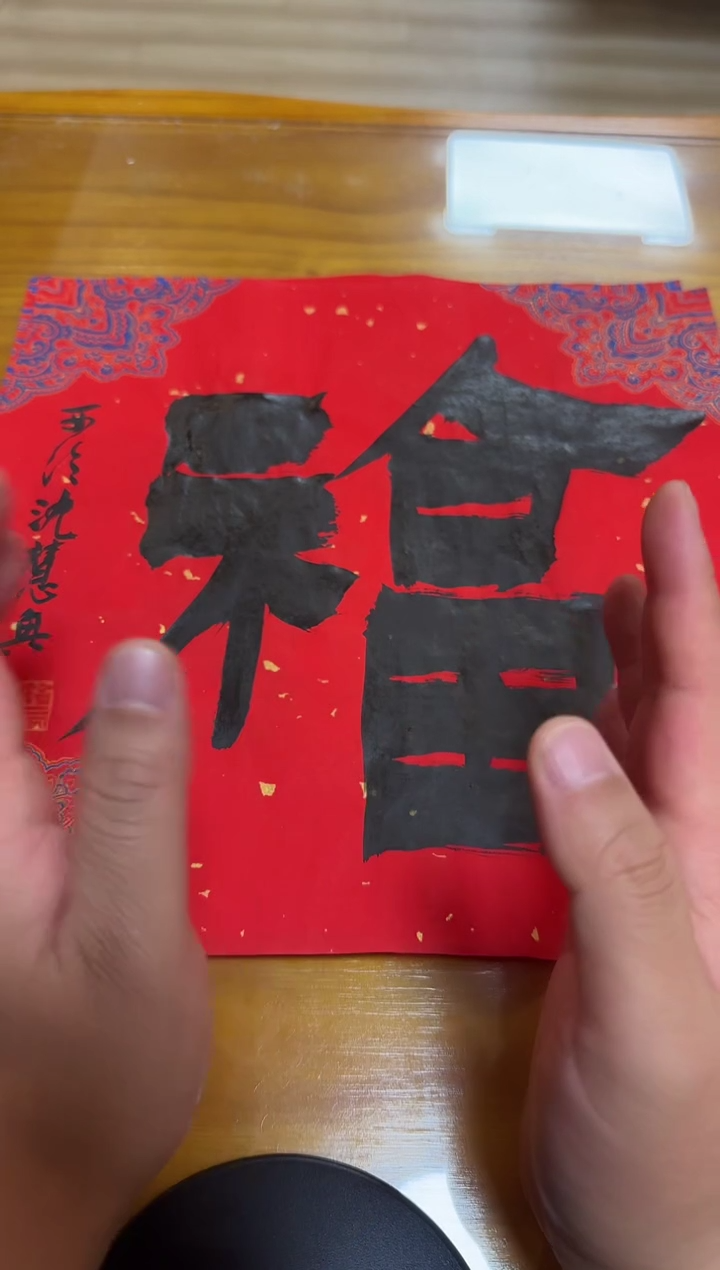 福
西泠沈慧興